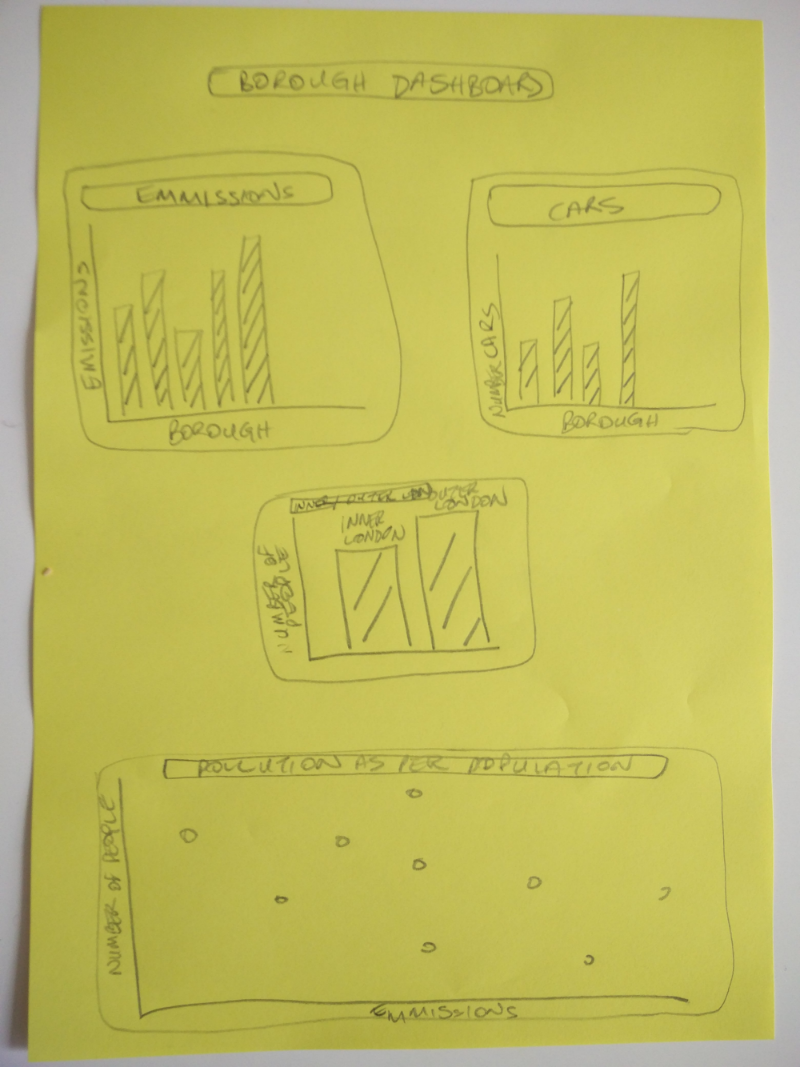 BOROUGH DASHBOARD
EMMISSIONS
EMISSIONS
BOROUGH
CARS
NUMBER CARS
BOROUGH
INNER/OUTER LONDON
INNER
LONDON
OUTER
LONDON
NUMBER OF
PEOPLE
POLLUTION AS PER POPULATION
NUMBER OF PEOPLE
EMMISSIONS